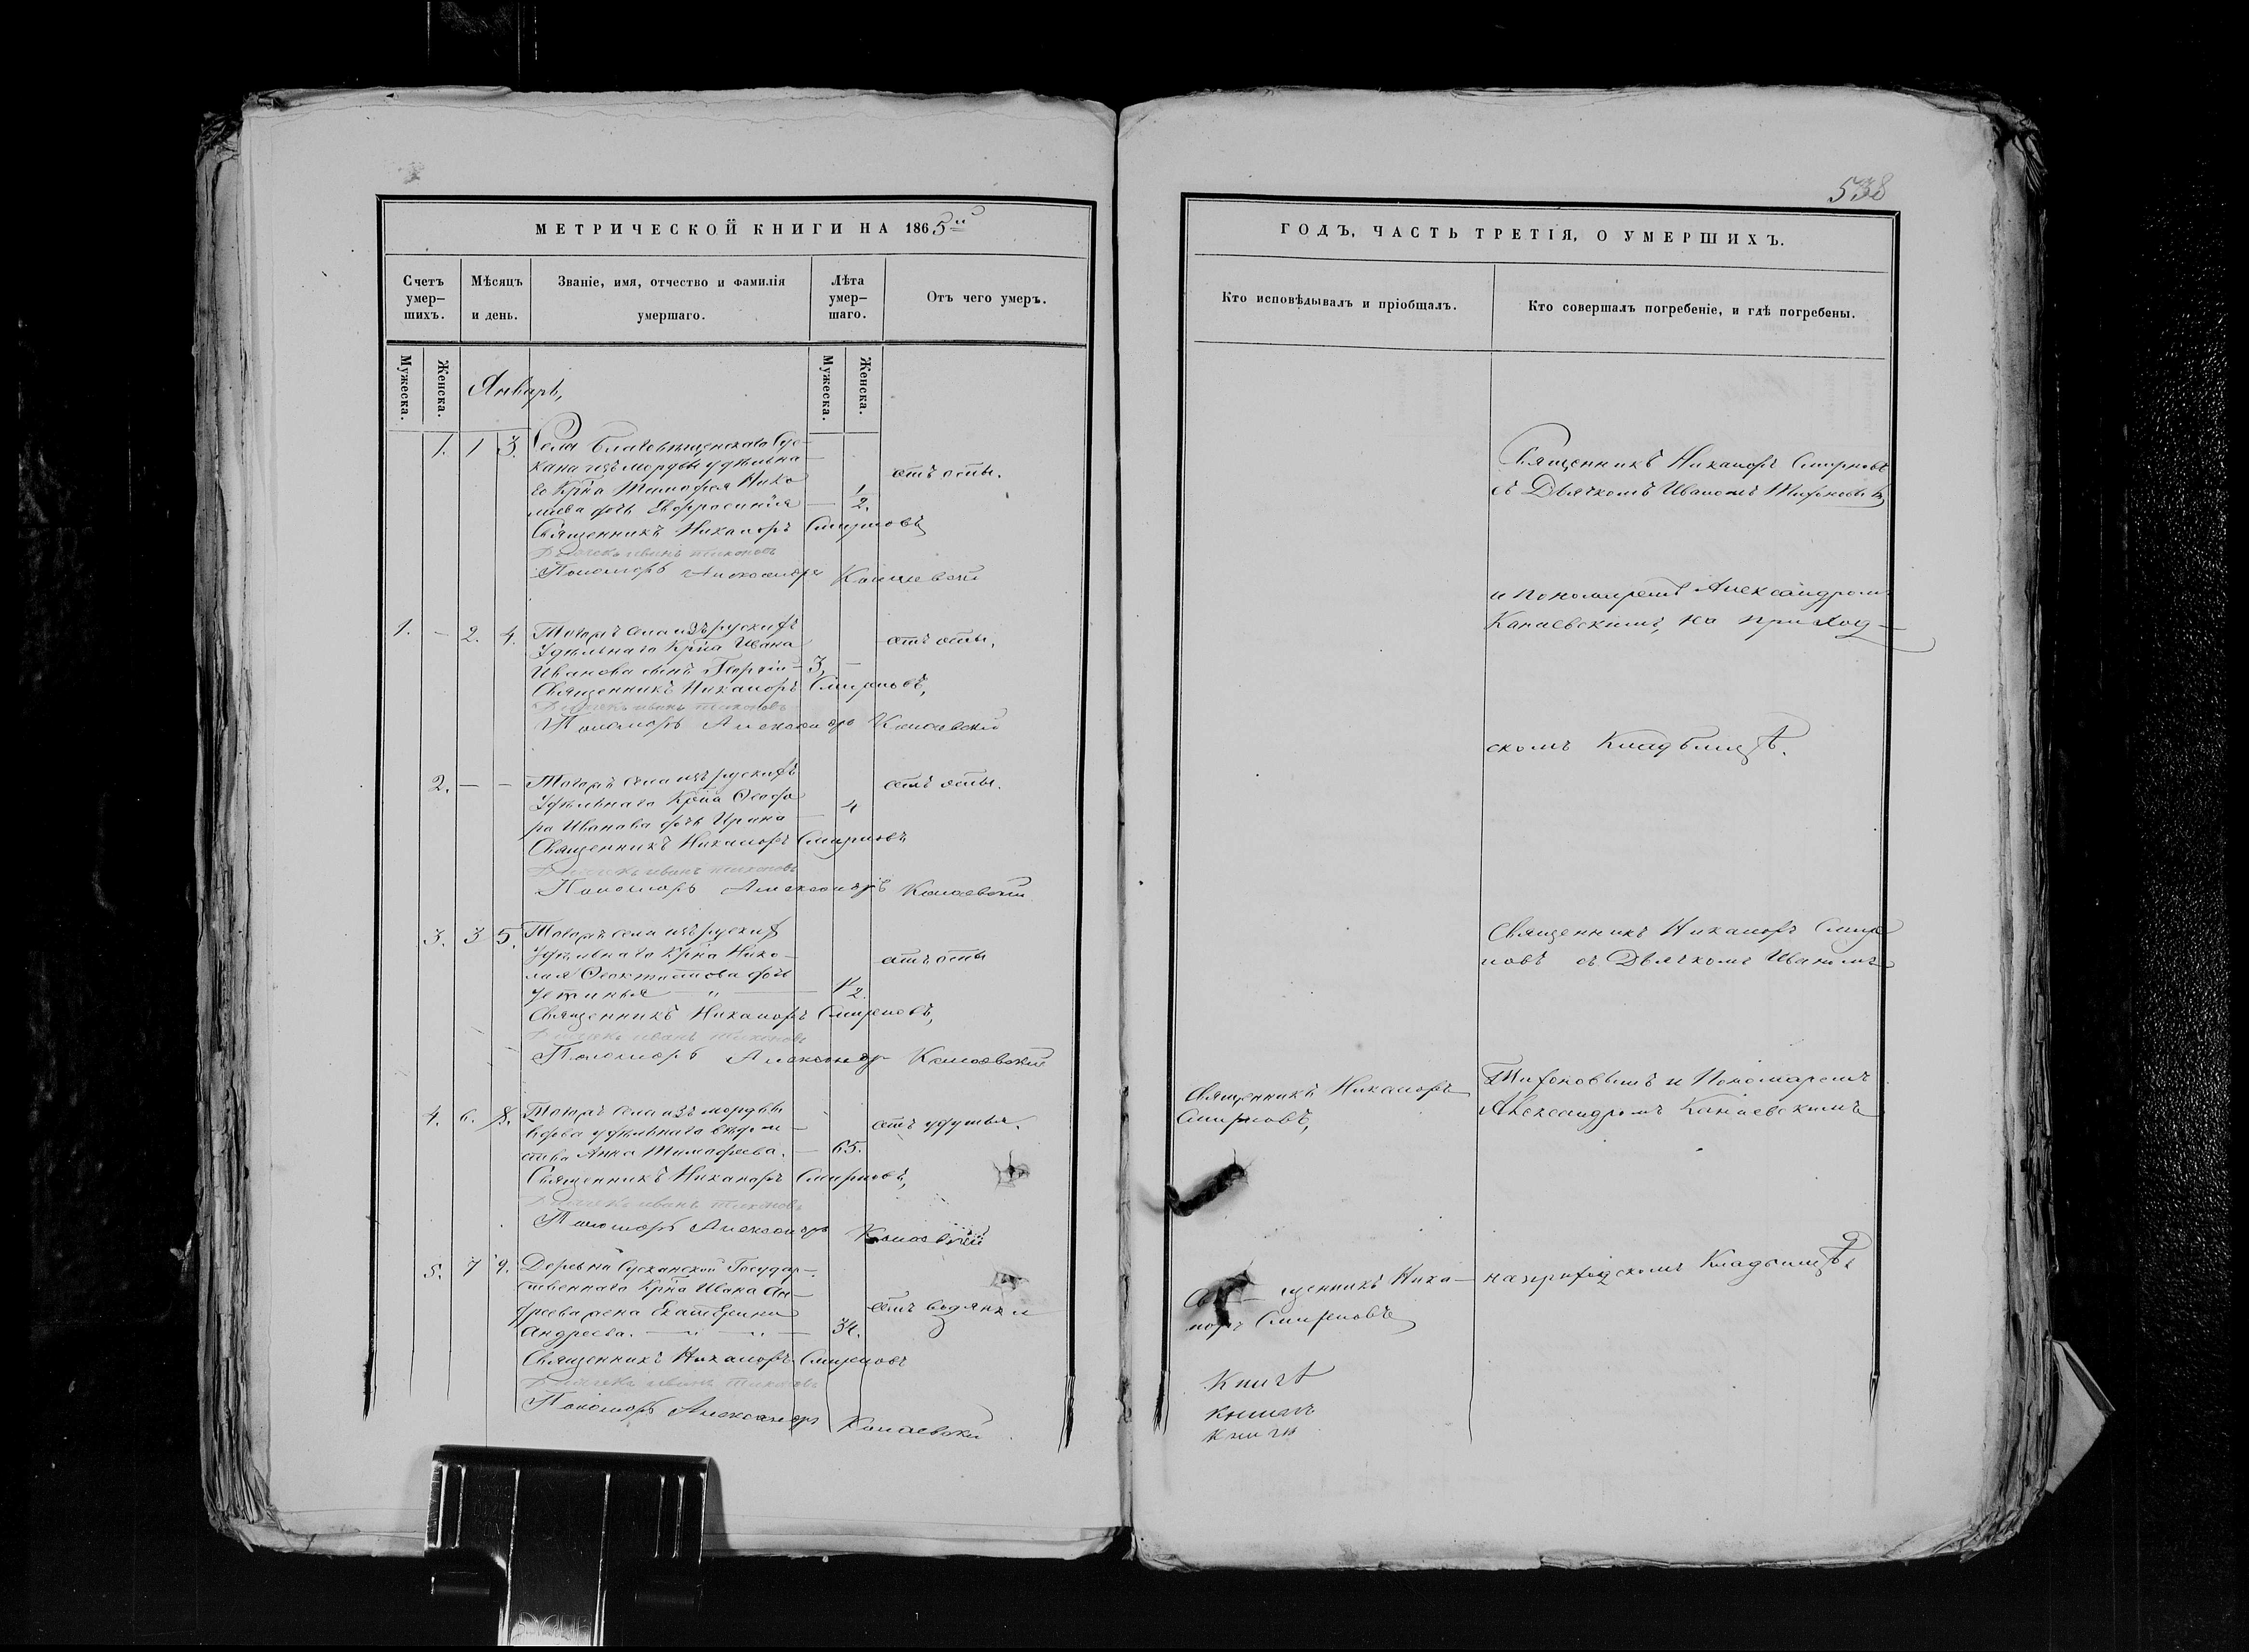 МЕТРИЧЕСКОЙ КНИГИ НА 1865й
Счетъ умер- шихъ.
Мѣсяцъ и день.
Званіе, имя, отчество и фамилія умершаго.
Лѣта умер- шаго.
Отъ чего умеръ.
Мужеска.
Женска.
Мужеска.
Женска.
Январь,
1. 1 3. Села Благовѣщенскаго Сус-
кана изъ мордвы удѣльна-
го Крна Тимофея Нико
лаева дочь Евфросинія — 1/2. отъ оспы.
Священникъ Никаноръ Смирновъ
Дьячекъ иванъ тихоновъ
Пономарь Александръ Канаевскій
1. — 2. 4. Тогожъ села изъ рускихъ
Удѣльнаго Крна Ивана
Иванова сынъ Георгій — 3, — отъ оспы,
Священникъ Никаноръ Смирновъ,
Дьячекъ иванъ тихоновъ
Пономарь Александръ Канаевскій
2. — — Тогожъ села изъ рускихъ
Удѣльнаго Крна Ѳеодо
ра Иванова дочь Ирина — 4 отъ оспы.
Священникъ Никаноръ Смирновъ
Дьячекъ иванъ тихоновъ
Пономарь Александръ Канаевскій
3. 3 5. Тогожъ села изъ рускихъ
Удѣльнаго Крна Нико-
лая Ѳеоктистова дочь
Устинья — " — 1/2. отъ оспы
Священникъ Никаноръ Смирновъ,
Дьячекъ иванъ тихоновъ
Пономарь Александръ Канаевскій
4. 6. 8. Тогожъ села изъ мордвы
вдова удѣльнаго вѣдом-
ства Анна Тимофеева. — 65. отъ удушья.
Священникъ Никаноръ Смирновъ,
Дьячекъ иванъ тихоновъ
Пономарь Александръ Канаевскій
5. 7 9. Деревни Сусканской Государ-
ственнаго Крна Ивана Ан-
дреева жена Екатерина
Андреева. — " — " — 34. отъ водянки
Священникъ Никаноръ Смирновъ
Дьячекъ иванъ тихоновъ
Пономарь Александръ Канаевскій
538
ГОДЪ, ЧАСТЬ ТРЕТІЯ, О УМЕРШИХЪ.
Кто исповѣдывалъ и пріобщалъ.
Кто совершалъ погребеніе, и гдѣ погребены.
Священникъ Никаноръ Смирновъ
съ Дьячкомъ Иваномъ Тихоновымъ
и пономаремъ Александромъ
Канаевскимъ, на приход-
скомъ Кладбищѣ.
Священникъ Никаноръ Смир
новъ съ Дьячкомъ Иваномъ
Тихоновымъ и Пономаремъ
Александромъ Канаевскимъ
на приходскомъ Кладбищѣ,
Священникъ Никаноръ
Смирновъ,
Священникъ Ника-
норъ Смирновъ
Книга